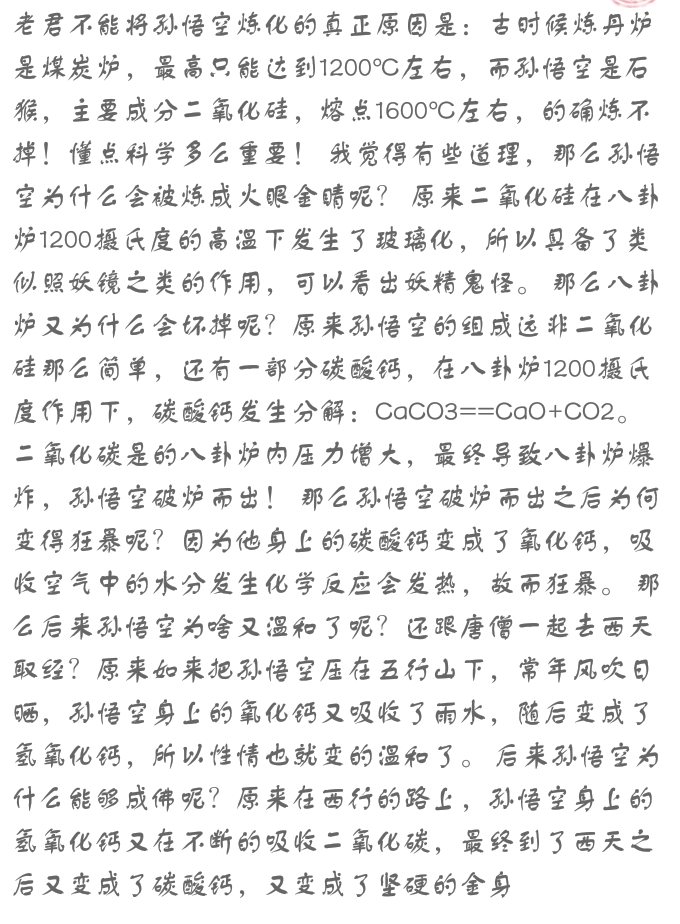 老君不能将孙悟空炼化的真正原因是：古时候炼丹炉
是煤炭炉，最高只能达到1200℃左右，而孙悟空是石
猴，主要成分二氧化硅，熔点1600℃左右，的确炼不
掉！懂点科学多么重要！ 我觉得有些道理，那么孙悟
空为什么会被炼成火眼金睛呢？ 原来二氧化硅在八卦
炉1200摄氏度的高温下发生了玻璃化，所以具备了类
似照妖镜之类的作用，可以看出妖精鬼怪。 那么八卦
炉又为什么会坏掉呢？原来孙悟空的组成远非二氧化
硅那么简单，还有一部分碳酸钙，在八卦炉1200摄氏
度作用下，碳酸钙发生分解：CaCO3==CaO+CO2。
二氧化碳是的八卦炉内压力增大，最终导致八卦炉爆
炸，孙悟空破炉而出！ 那么孙悟空破炉而出之后为何
变得狂暴呢？因为他身上的碳酸钙变成了氧化钙，吸
收空气中的水分发生化学反应会发热，故而狂暴。 那
么后来孙悟空为啥又温和了呢？还跟唐僧一起去西天
取经？原来如来把孙悟空压在五行山下，常年风吹日
晒，孙悟空身上的氧化钙又吸收了雨水，随后变成了
氢氧化钙，所以性情也就变的温和了。 后来孙悟空为
什么能够成佛呢？原来在西行的路上，孙悟空身上的
氢氧化钙又在不断的吸收二氧化碳，最终到了西天之
后又变成了碳酸钙，又变成了坚硬的金身